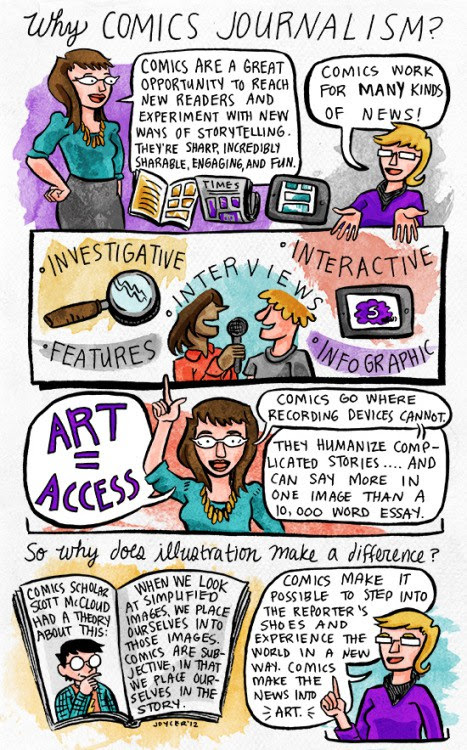 Why COMICS JOURNALISM?
COMICS ARE A GREAT
OPPORTUNITY TO REACH
NEW READERS AND
EXPERIMENT WITH NEW
WAYS OF STORYTELLING.
THEY'RE SHARP, INCREDIBLY
SHARABLE, ENGAGING, AND FUN.
COMICS WORK
FOR MANY KINDS
OF NEWS!
TIMES
• INVESTIGATIVE
• INTERVIEWS
• INTERACTIVE
3
• FEATURES
• INFOGRAPHIC
ART
=
ACCESS
COMICS GO WHERE
RECORDING DEVICES CANNOT.
THEY HUMANIZE COMP-
LICATED STORIES.... AND
CAN SAY MORE IN
ONE IMAGE THAN A
10,000 WORD ESSAY.
So why does illustration make a difference?
COMICS SCHOLAR
SCOTT McCLOUD
HAD A THEORY
ABOUT THIS:
WHEN WE LOOK
AT SIMPLIFIED
IMAGES, WE PLACE
OURSELVES INTO
THOSE IMAGES.
COMICS ARE SUB-
JECTIVE, IN THAT
WE PLACE OUR-
SELVES IN THE
STORY.
JOYCER'12
COMICS MAKE IT
POSSIBLE TO STEP INTO
THE REPORTER'S
SHOES AND
EXPERIENCE THE
WORLD IN A NEW
WAY. COMICS
MAKE THE
NEWS INTO
ART.